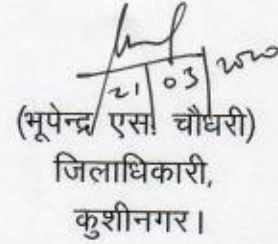 21/03/2020
(भूपेन्द्र एस. चौधरी)
जिलाधिकारी,
कुशीनगर।